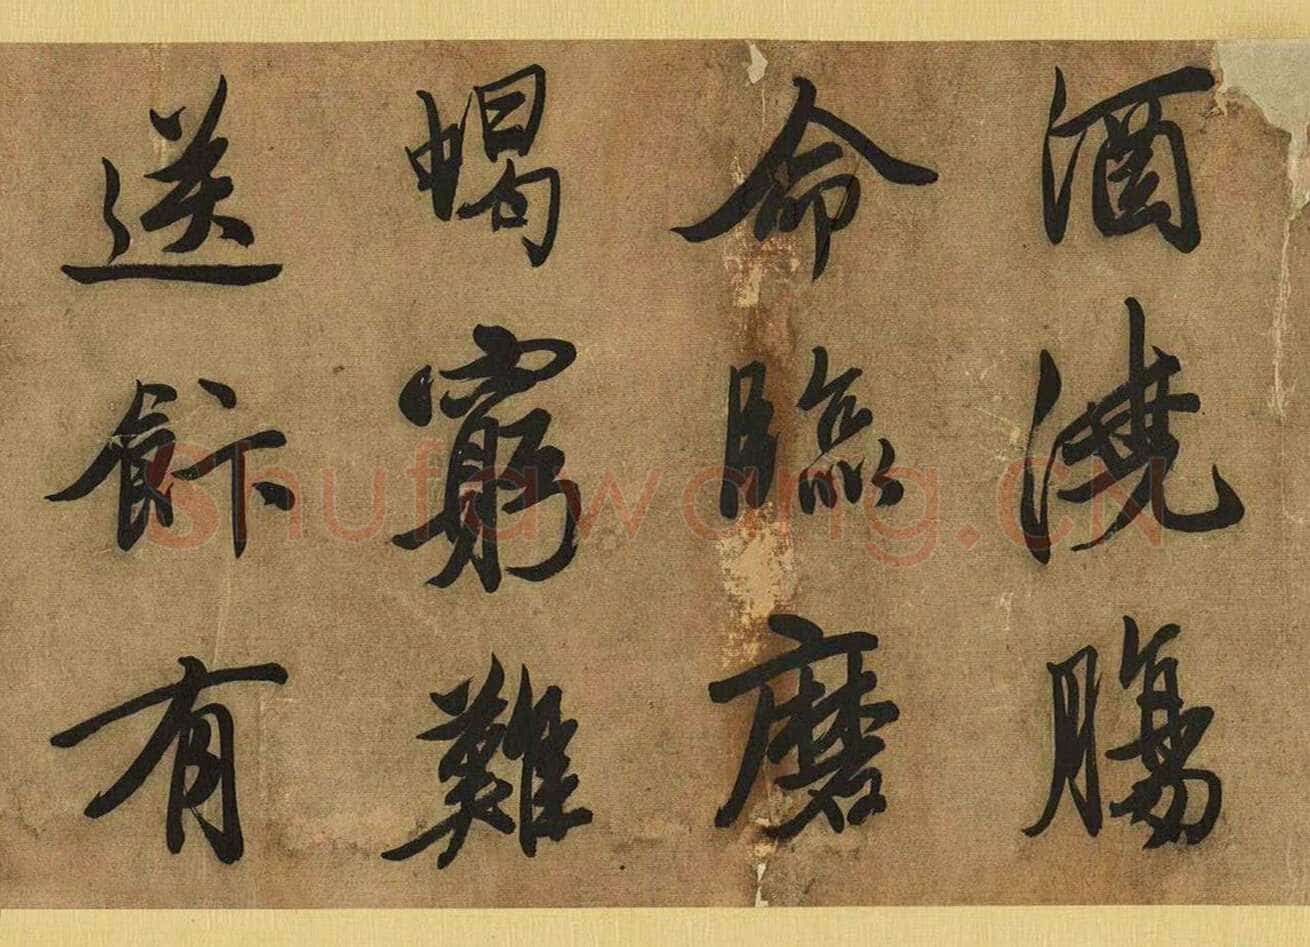 酒澆膓
命臨磨
蝎窮難
送飰有
Shufawang.CN